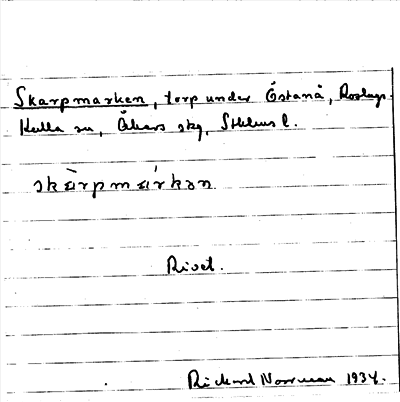 Skarpmarken, torp under Östanå, Roslags-
Kulla sn, Åkers skg, Sthlms l.
skàrpmárkən
Rivet.
Rickard Norrman 1934.